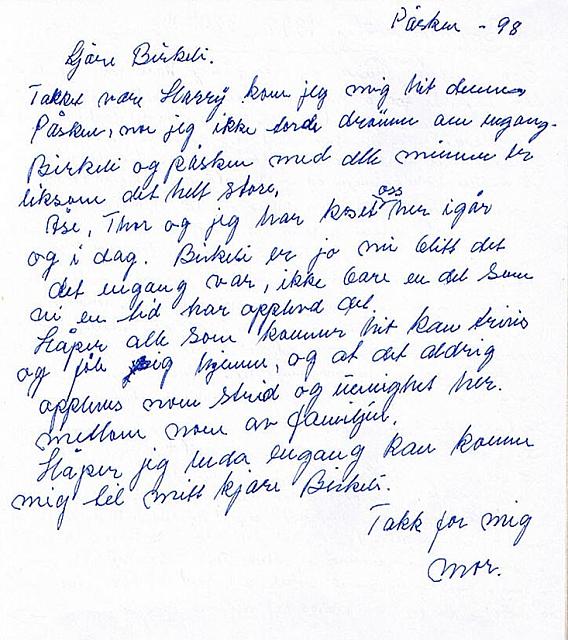 Påsken - 98
Kjære Birkeli.
Takket være Harry kom jeg mig hit denne
Påsken, noe jeg ikke torde drømme om engang.
Birkeli og påsken med alle minner er
liksom det helt store.
Åse, Thor og jeg har koset oss her igår
og i dag. Birkeli er jo nu blitt det
det engang var, ikke bare en del som
vi en tid har opplevd det.
Håper alle som kommer hit kan trives
og føle sig hjemme, og at det aldrig
oppleves noen strid og uenighet her.
mellom noen av familjen.
Håper jeg enda engang kan komme
mig til mitt kjære Birkeli.
Takk for mig
Mor.